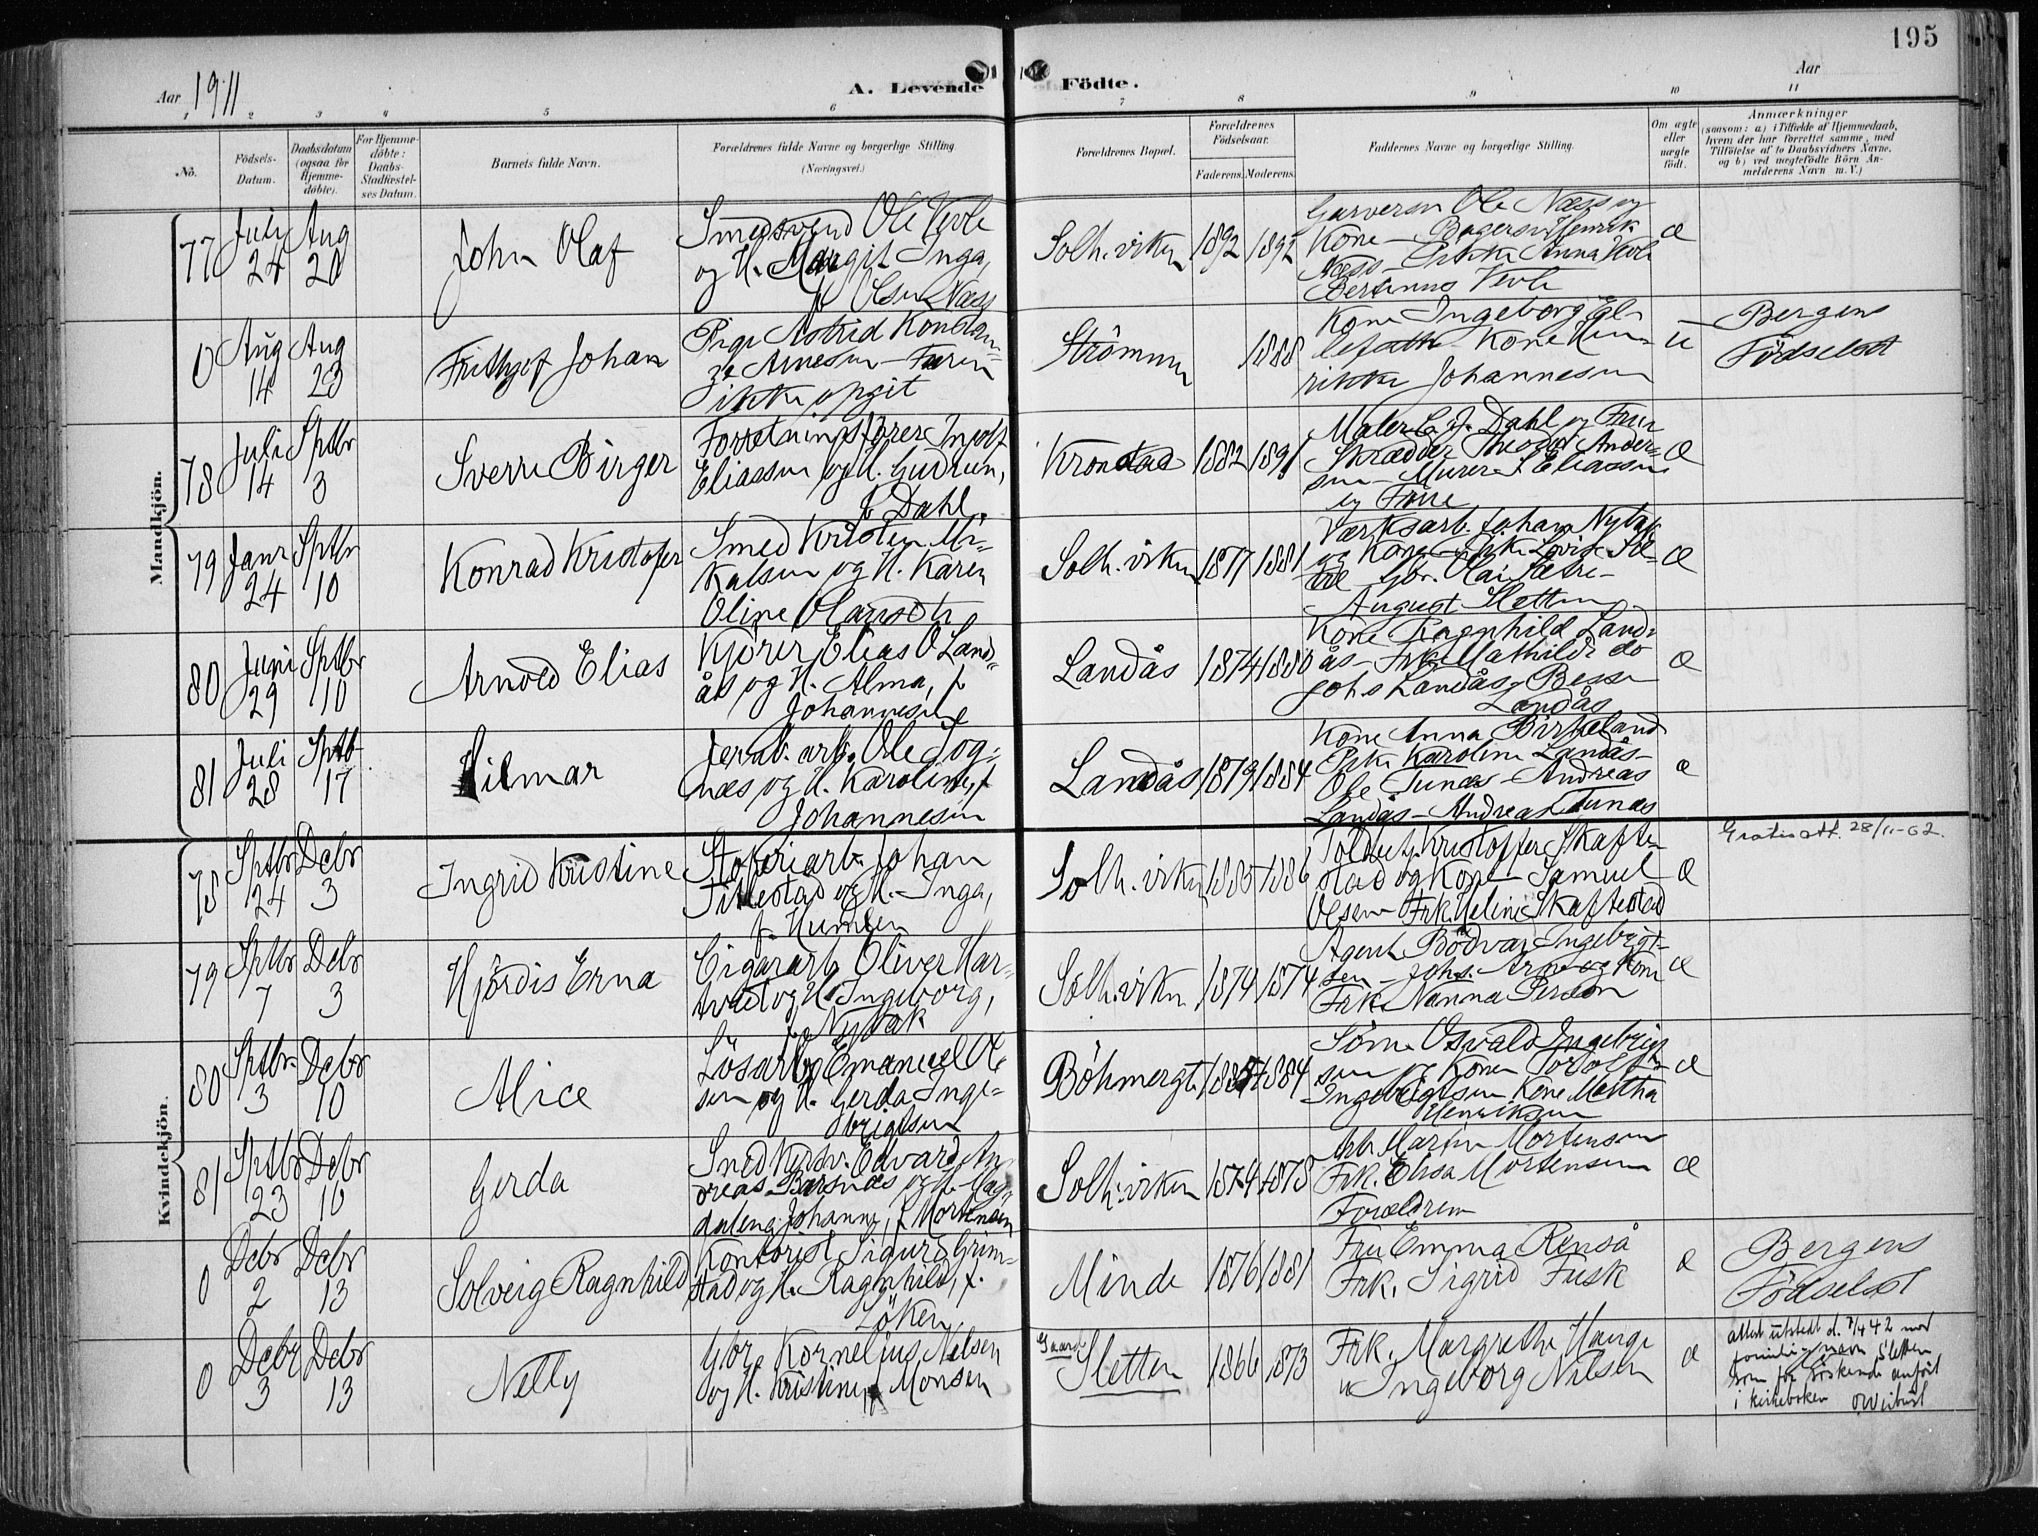 195
Aar 1911
A. Levende
Födte.
Aar
1 2 3 4 5 6 7 8 9 10 11
No.
Födsels-Datum.
Daabsdatum (ogsaa for Hjemmedøbte).
For Hjemmedøbte: Daabs-Stadfæstelses Datum.
Barnets fulde Navn.
Forældrenes fulde Navne og borgerlige Stilling (Næringsvei.)
Forældrenes Bopæl.
Forældrenes Födselsaar.
Faderens. Moderens.
Faddernes Navne og borgerlige Stilling.
Om ægte eller uægte født.
Anmærkninger
(saasom: a) i Tilfælde af Hjemmedaab, hvem der har forrettet samme, med Tilföielse af to Daabsvidners Navne, og b) ved uægtefödte Börn Anmelderens Navn m. V.)
Mandkjön.
77 Juli 24 Aug 20 John Olaf
Smedsvend Ole Vevle
og H. Margit Inga,
f. Olsen Næss
Solh.viken 1892 1892
Garversv. Ole Næss og
Kone - Bagersv. Henrik
Næss - Frk. Anna Vevle
Bertinus Vevle
æ
0 Aug 14 Aug 23 Frithjof Johan
Pige Astrid Konstan-
ze Arnesen - Faren
ikke opgit
Strömmen 1888
Kone Ingeborg
Kone Hen-
rikke Johannesen
u
Bergens
Födselsst
78 Juli 14 Sptbr 3 Sverre Birger
Forretningsförer Ingolf
Eliassen og H. Gudrun,
f. Dahl.
Kronstad 1882 1891
Maler C. J. Dahl og Frue
Skrædder Theodor Ander-
sen - Murer J. Eliassen
og Frue
æ
79 Janr 24 Sptbr 10 Konrad Kristofer
Smed Kristen Mi-
kalsen og H. Karen
Oline Olavsdtr
Solh.viken 1877 1881
Værksarb. Johan Nybak
og Kone - Frk. Lovise Sæ-
tre Gbr. Olai Sætre -
August Sletten
æ
80 Juni 29 Sptbr 10 Arnold Elias
Kjörer Elias O Land-
ås og H. Alma, f.
Johannesen
Landås 1874 1880
Kone Ragnhild Land-
ås - Frk. Mathilde do
Johs Landås -
Landås
æ
81 Juli 28 Sptb 17 Hilmar
Jernb. arb. Ole Sog-
næs og H. Karoline, f.
Johannesen
Landås 1879 1884
Kone Anna Birkeland
Frk. Karoline Landås -
Ole Tunæs - Andreas
Landås - Andreas Tunæs
æ
Kvindekjön.
78 Sptbr 24 Dcbr 3 Ingrid Kristine
Støperiarb. Johan
Tittlestad og H. Inga,
f. Humlen
Solh.viken 1885 1886
Toldbetj. Kristoffer Skafte-
stad og Kone - Samuel
Olsen - Frk. Heline Skaftestad
æ
Gratis att. 28/11-62.
79 Sptbr 7 Dcbr 3 Hjördis Erna
Cigararb. Oliver Har-
tvedt og H. Ingeborg,
f. Nybak
Solh.viken 1874 1874
Agent Bödvar Ingebrigt-
sen - Johs. Arne og Kone
Frk. Nanna Person
æ
80 Sptbr. 3 Dcbr 10 Alice
Lösarb. Emanuel Ol-
sen og H. Gerda Inge-
brigtsen
Böhmergt. 1884
Osvald Ingebrigt-
sen og Kone Torolf
Ingebrigtsen Kone Mettha
Henriksen
æ
81 Sptbr 23 Dcbr 10 Gerda
Smedkjørsv. Edvard An-
dreas Barsnæs og H. Mag-
dalena Johanne, f. Mortensen
Solh.viken 1874 1878
Arb. Martin Mortensen
Frk. Elisa Mortensen
Foreldrene
æ
0 Dcbr 2 Dcbr 13 Solveig Ragnhild
Kontorist Sigurd Grim-
stad og H. Ragnhild, f.
Löken
Minde 1876 1881
Fru Emma Renså
Frk. Sigrid Fusk
æ
Bergens
Födselsst
0 Dcbr 3 Dcbr 13 Nelly
Gbr. Kornelius Nilsen
og H. Kristine f. Monsen
Gaard
Sletten 1866 1873
Frk. Margrethe Hauge
" Ingeborg Nilsen
æ
attest utstedt d. 7/4 42 med
familienavn Sletten
som for söskende anført
i kirkeboken